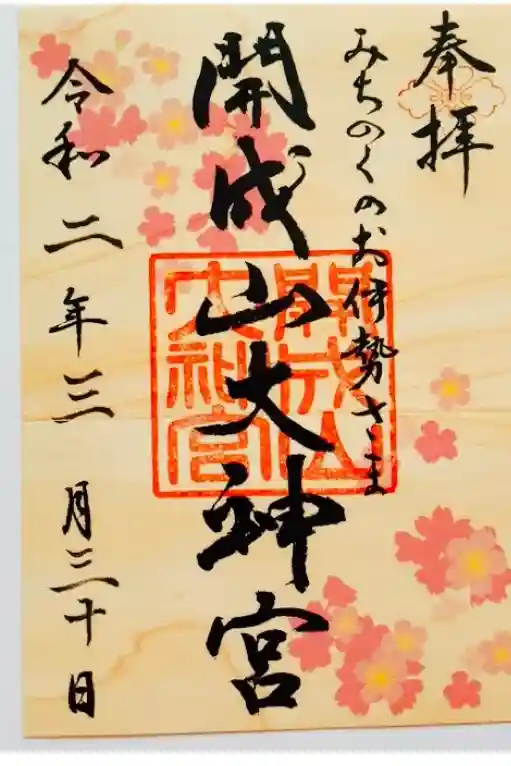 奉拝
みちのくのお伊勢さま
開成山大神宮
開成山
大神宮
令和二年三月三十日